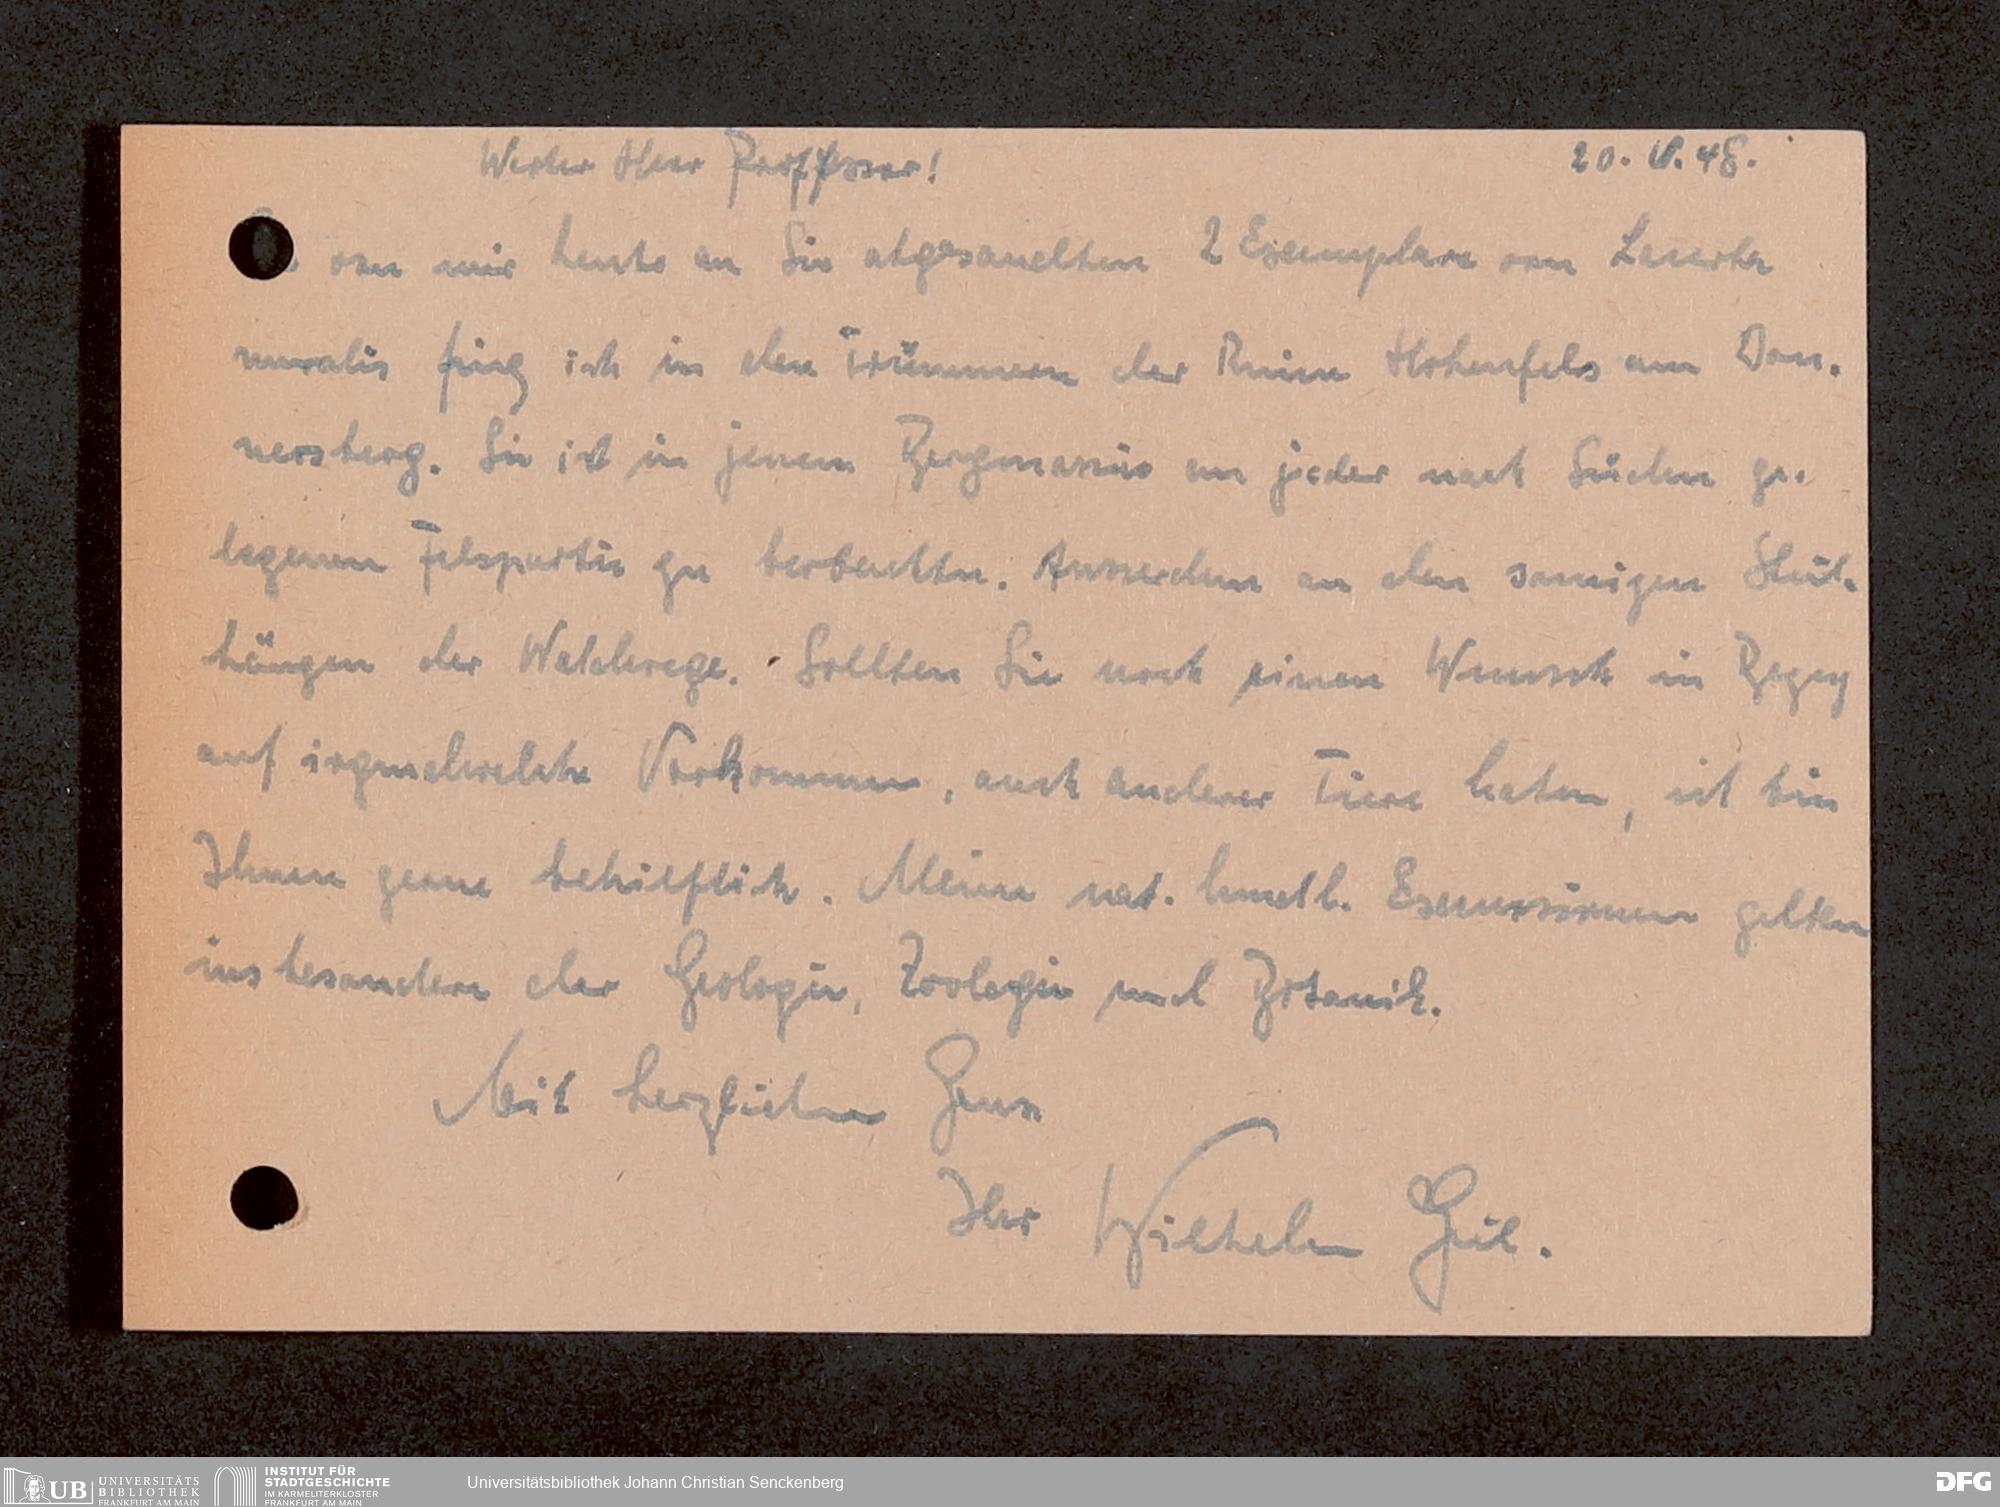 Werter Herr Professor! 20. V. 48.
von mir heute an Sie abgesandten 2 Exemplare von Lacerta
muralis fing ich in den Trümmern der Ruine Hohenfels am Don-
nersberg. Sie ist in jenem Bergmassiv an jeder nach Süden ge-
legenen Felspartie zu beobachten. Ausserdem an den sonnigen Steil-
hängen der Waldwege. Sollten Sie noch einen Wunsch in Bezug
auf irgendwelche Vorkommen, auch anderer Tiere haben, ich bin
Ihnen gerne behilflich. Meine nat. kundl. Excursionen gelten
insbesondere der Geologie, Zoologie und Botanik.
Mit herzlichem Gruss
Ihr Wilhelm
UB UNIVERSITÄTS
BIBLIOTHEK
FRANKFURT AM MAIN
INSTITUT FÜR
STADTGESCHICHTE
IM KARMELITERKLOSTER
FRANKFURT AM MAIN
Universitätsbibliothek Johann Christian Senckenberg
DFG